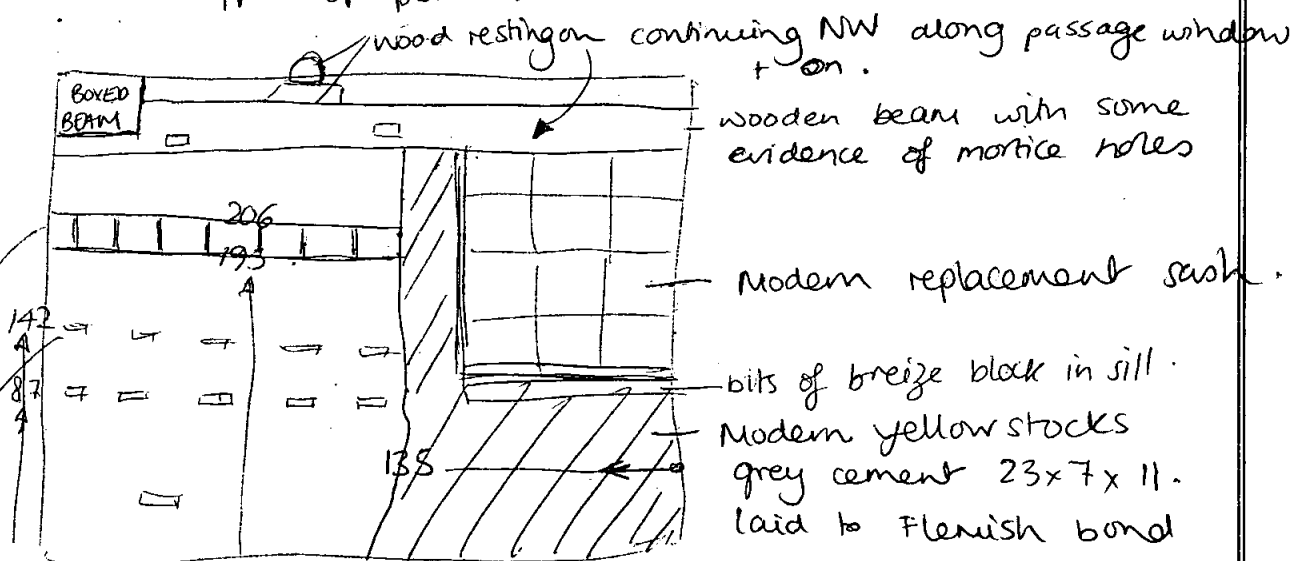 wood resting on continuing NW along passage window
+ on.
BOXED
BEAM
wooden beam with some
evidence of mortice holes
206
195
Modern replacement sash.
142
87
bits of breize block in sill.
Modern yellow stocks
138
grey cement 23x7x11.
laid to Flemish bond